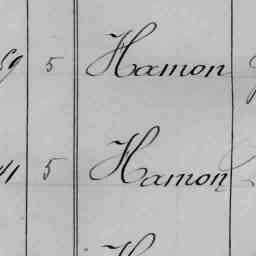 59 5 Hamon
41 5 Hamon